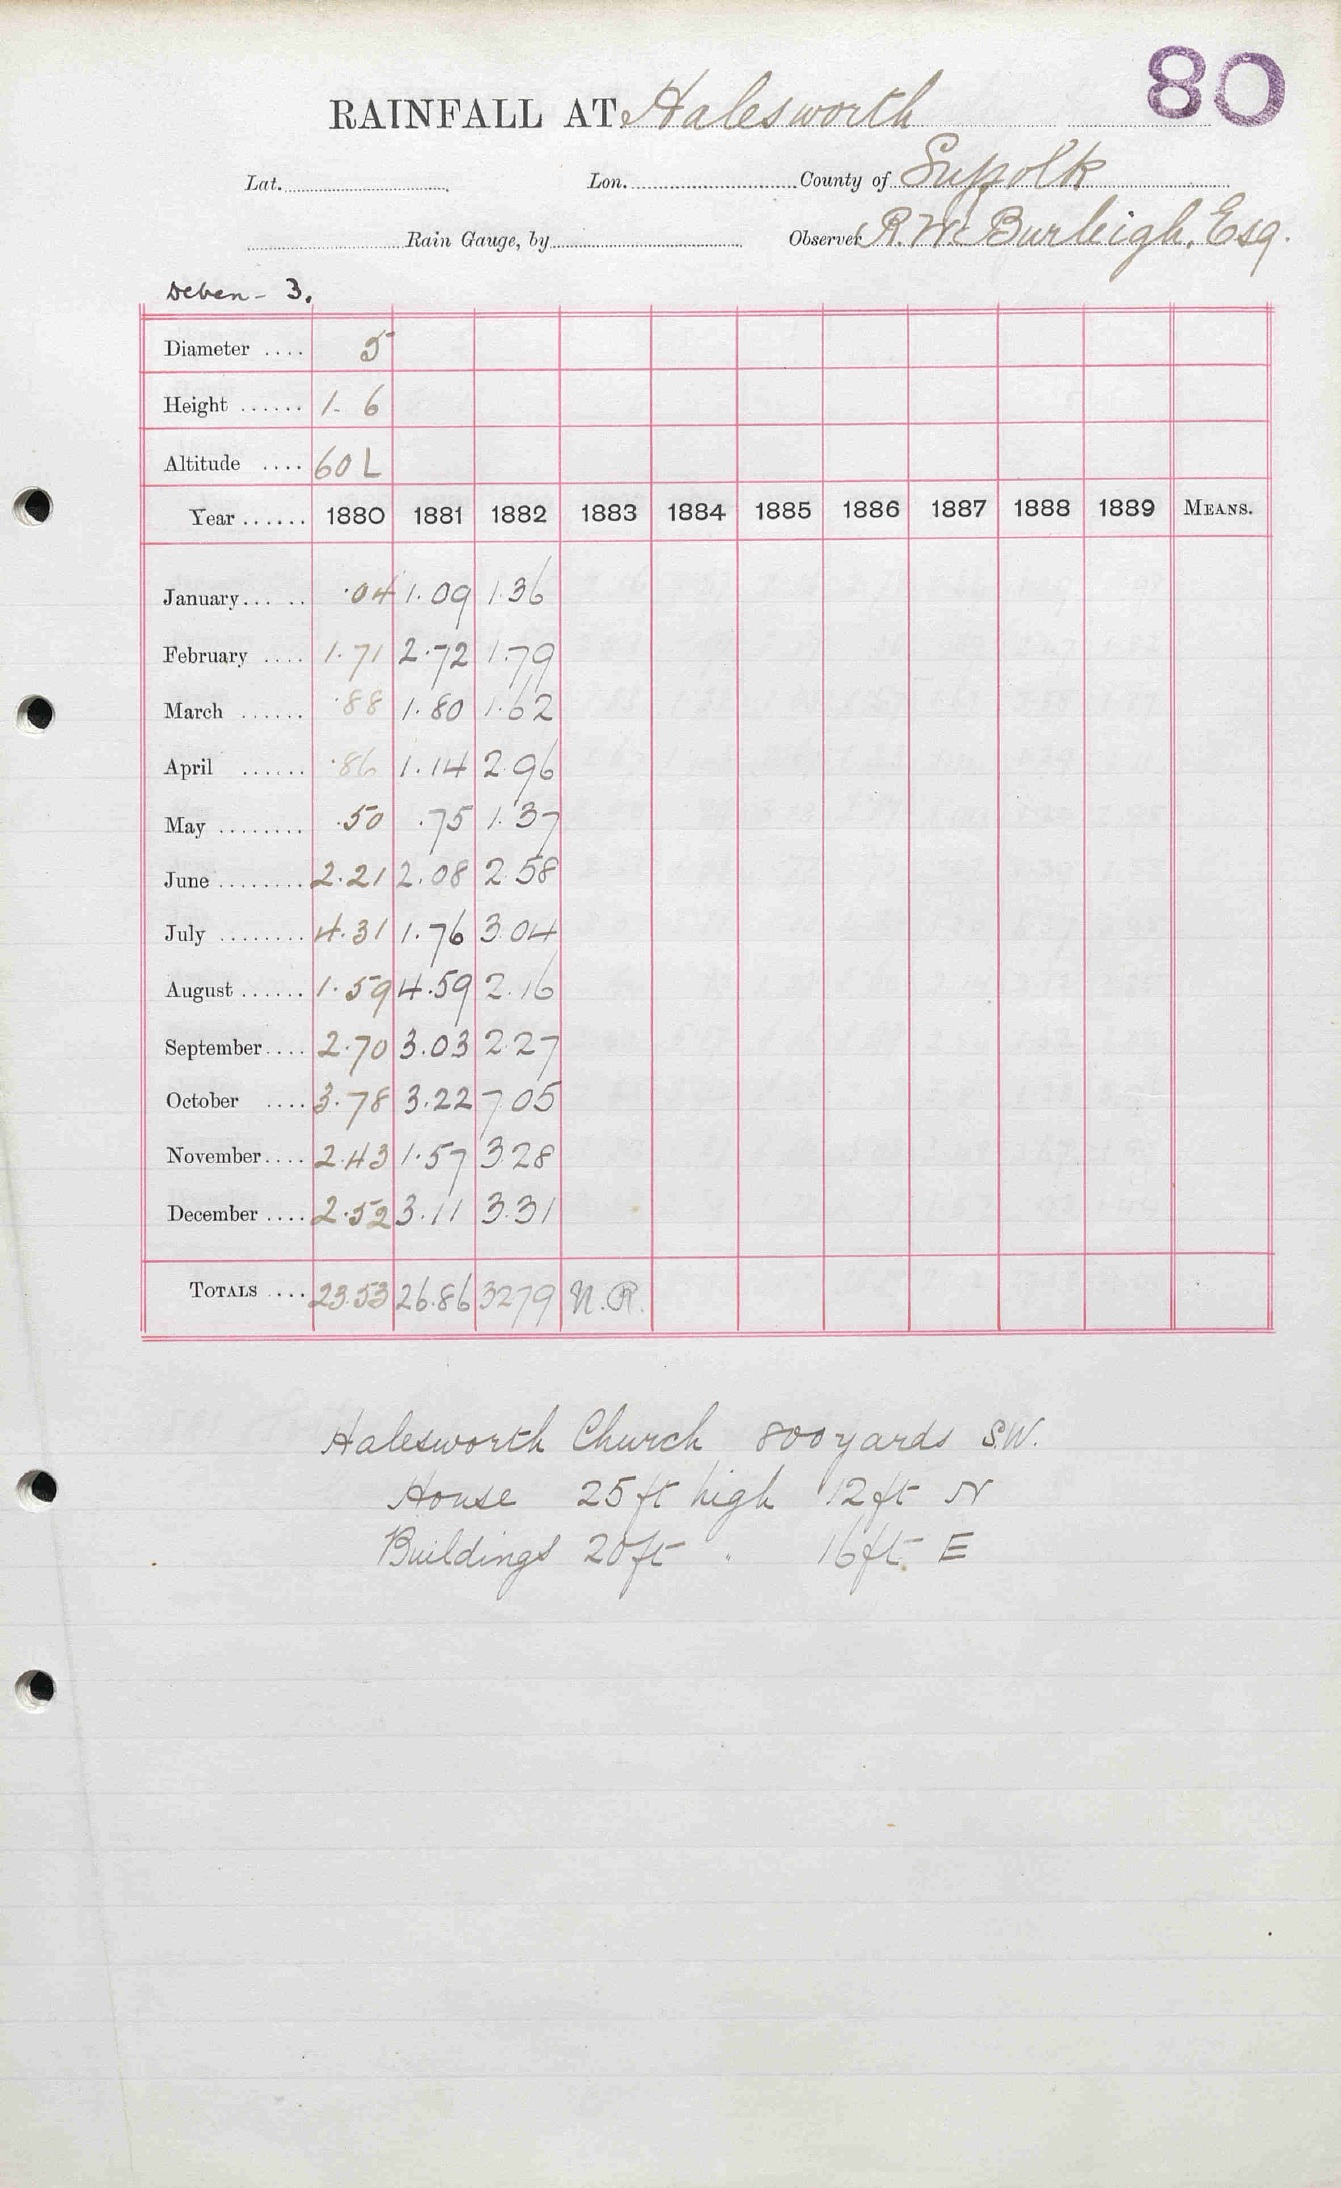 80
RAINFALL AT Halesworth
Lat. Lon. County of Suffolk
Rain Gauge, by Observer R. W. Burleigh, Esq.
Deben - 3.
Diameter .... 5
Height ...... 1. 6
Altitude .... 60 L
Year ...... 1880 1881 1882 1883 1884 1885 1886 1887 1888 1889 MEANS.
January..... .04 1.09 1.36
February .... 1.71 2.72 1.79
March ...... .88 1.80 1.62
April ...... .86 1.14 2.96
May ........ .50 .75 1.37
June ........ 2.21 2.08 2.58
July ........ 4.31 1.76 3.04
August ...... 1.59 4.59 2.16
September.... 2.70 3.03 2.27
October .... 3.78 3.22 7.05
November.... 2.43 1.57 3.28
December .... 2.52 3.11 3.31
TOTALS .... 23.53 26.86 32.79 N.R.
Halesworth Church 800 yards S.W.
House 25 ft high 12 ft N
Buildings 20 ft " 16 ft. E